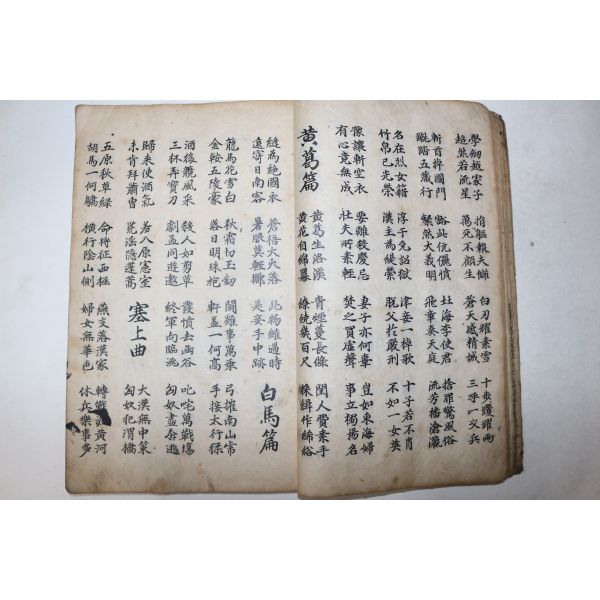 學劍越處子 捐軀報夫讎 白刃耀素雪 十步躩躍兩
超然若流星 萬死不顧生 蒼天感精誠 三呼一交兵
斬首掉國門 豁此伉儷憤 北海李使君 捨罪警風俗
蹴踏五藏行 粲然大義明 飛章奏天庭 流芳播滄瀛
名在烈女籍 淳于免詔獄 津妾一棹歌 十子若不肖
竹帛已光榮 漢主為緹縈 脫父於嚴刑 不如一女英
豫讓斬空衣 要離殺慶忌 妻子亦何辜 豈如東海婦
有心竟無成 壯夫所素輕 焚之買虛聲 事立獨揚名
黄葛篇
黄葛生洛溪 青煙蔓長條 閨人費素手
黄花自綿冪 繚繞幾百尺 採緝作絺綌
縫為絕國衣 蒼梧大火落 此物雖過時
遠寄日南客 暑服莫輕擲 是妾手中跡
白馬篇
龍馬花雪白 秋霜切玉劍 鬬雞事萬乘 弓摧南山虎
金鞍五陵豪 落日明珠袍 軒蓋一何高 手接太行猱
酒後競風采 殺人如剪草 發憤去函谷 叱咤萬戰場
三杯弄寶刀 劇孟同遊遨 從軍向臨洮 匈奴盡奔逃
歸來使酒氣 羞入原憲室
未肯拜蕭曹 荒淫隱蓬蒿
塞上曲
大漢無中策
匈奴犯渭橋
五原秋草綠 命將征西極 燕支落漢家 轉戰 黄河
胡馬一何驕 橫行陰山側 婦女無華色 休兵樂事多